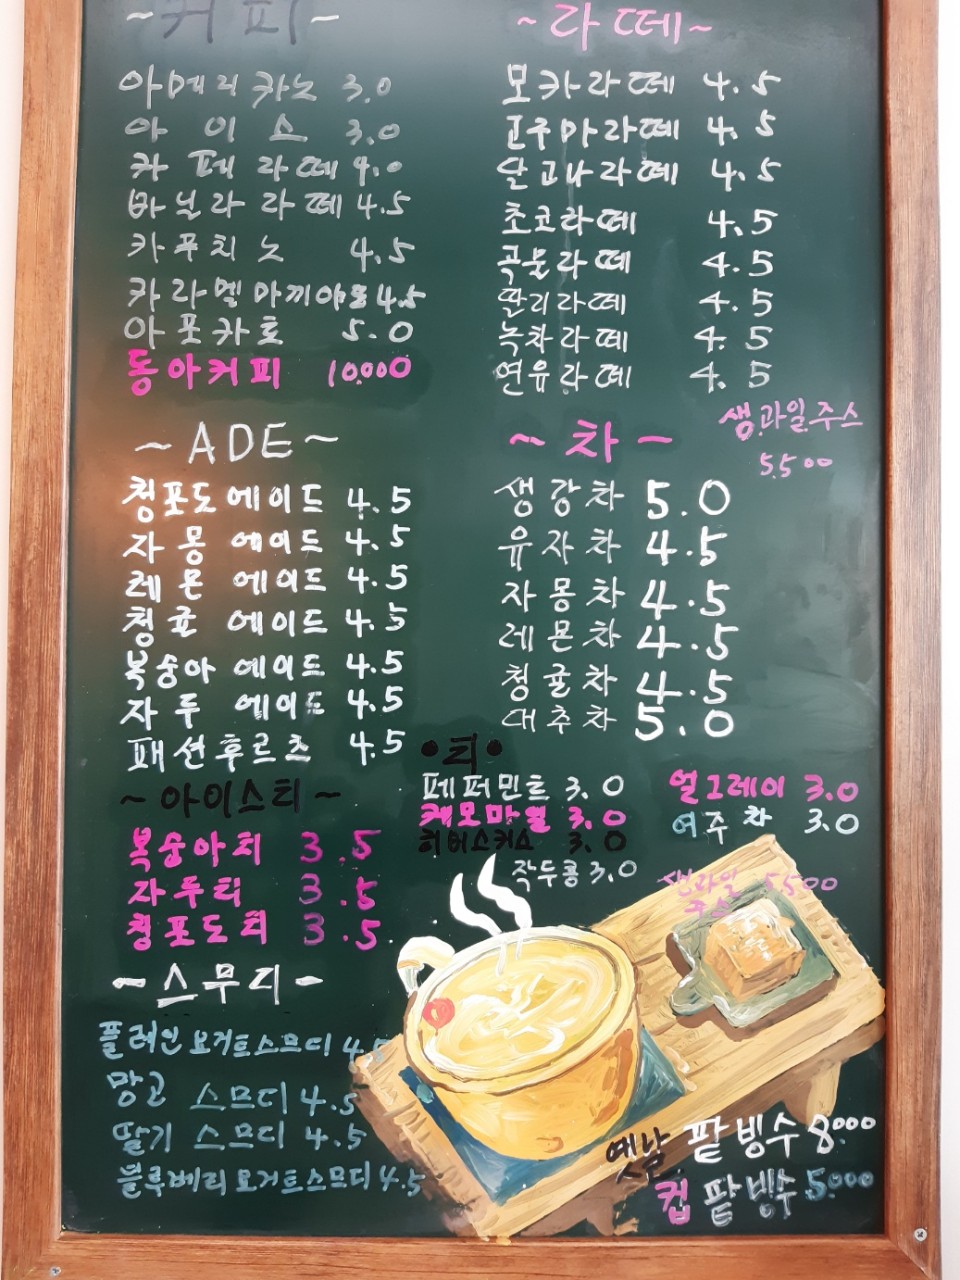 ~커피~
아메리카노 3.0
아이스 3.0
카페라떼 4.0
바닐라라떼 4.5
카푸치노 4.5
카라멜마끼야또 4.5
아포카토 5.0
동아커피 10.000
~라떼~
모카라떼 4.5
고구마라떼 4.5
달고나라떼 4.5
초코라떼 4.5
곡물라떼 4.5
딸기라떼 4.5
녹차라떼 4.5
연유라떼 4.5
생과일주스
5500
~ADE~
청포도에이드 4.5
자몽 에이드 4.5
레몬 에이드 4.5
청귤 에이드 4.5
복숭아 에이드 4.5
자두 에이드 4.5
패션후르츠 4.5
~차~
생강차 5.0
유자차 4.5
자몽차 4.5
레몬차 4.5
청귤차 4.5
대추차 5.0
~아이스티~
복숭아티 3.5
자두티 3.5
청포도티 3.5
•티•
페퍼민트 3.0
캐모마일 3.0
히비스커스 3.0
작두콩 3.0
얼그레이 3.0
여주차 3.0
생과일 5500
주스
~스무디~
플레인요거트스므디 4.5
망고 스므디 4.5
딸기 스므디 4.5
블루베리요거트스므디 4.5
옛날 팥빙수 8000
컵팥빙수 5.000